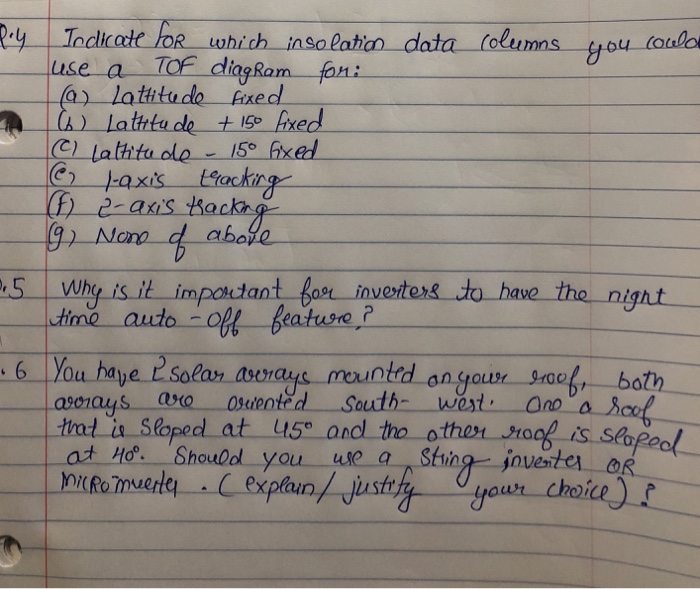 Q.4 Indicate FOR which insolation data columns you could
use a TOF diagRam for:
(a) Lattitude fixed
(b) Lattitude + 15° fixed
(c) Lattitude - 15° fixed
(e) 1-axis tracking
(f) 2-axis tracking
(g) None of above
.5 Why is it important for inverters to have the night
time auto-off feature?
.6 You have 2 solar arrays mounted on your roof, both
arrays are oriented South-West. One a roof
that is Sloped at 45° and the other roof is sloped
at 40°. Should you use a string inverter OR
Microinverter. (explain/justify your choice)?